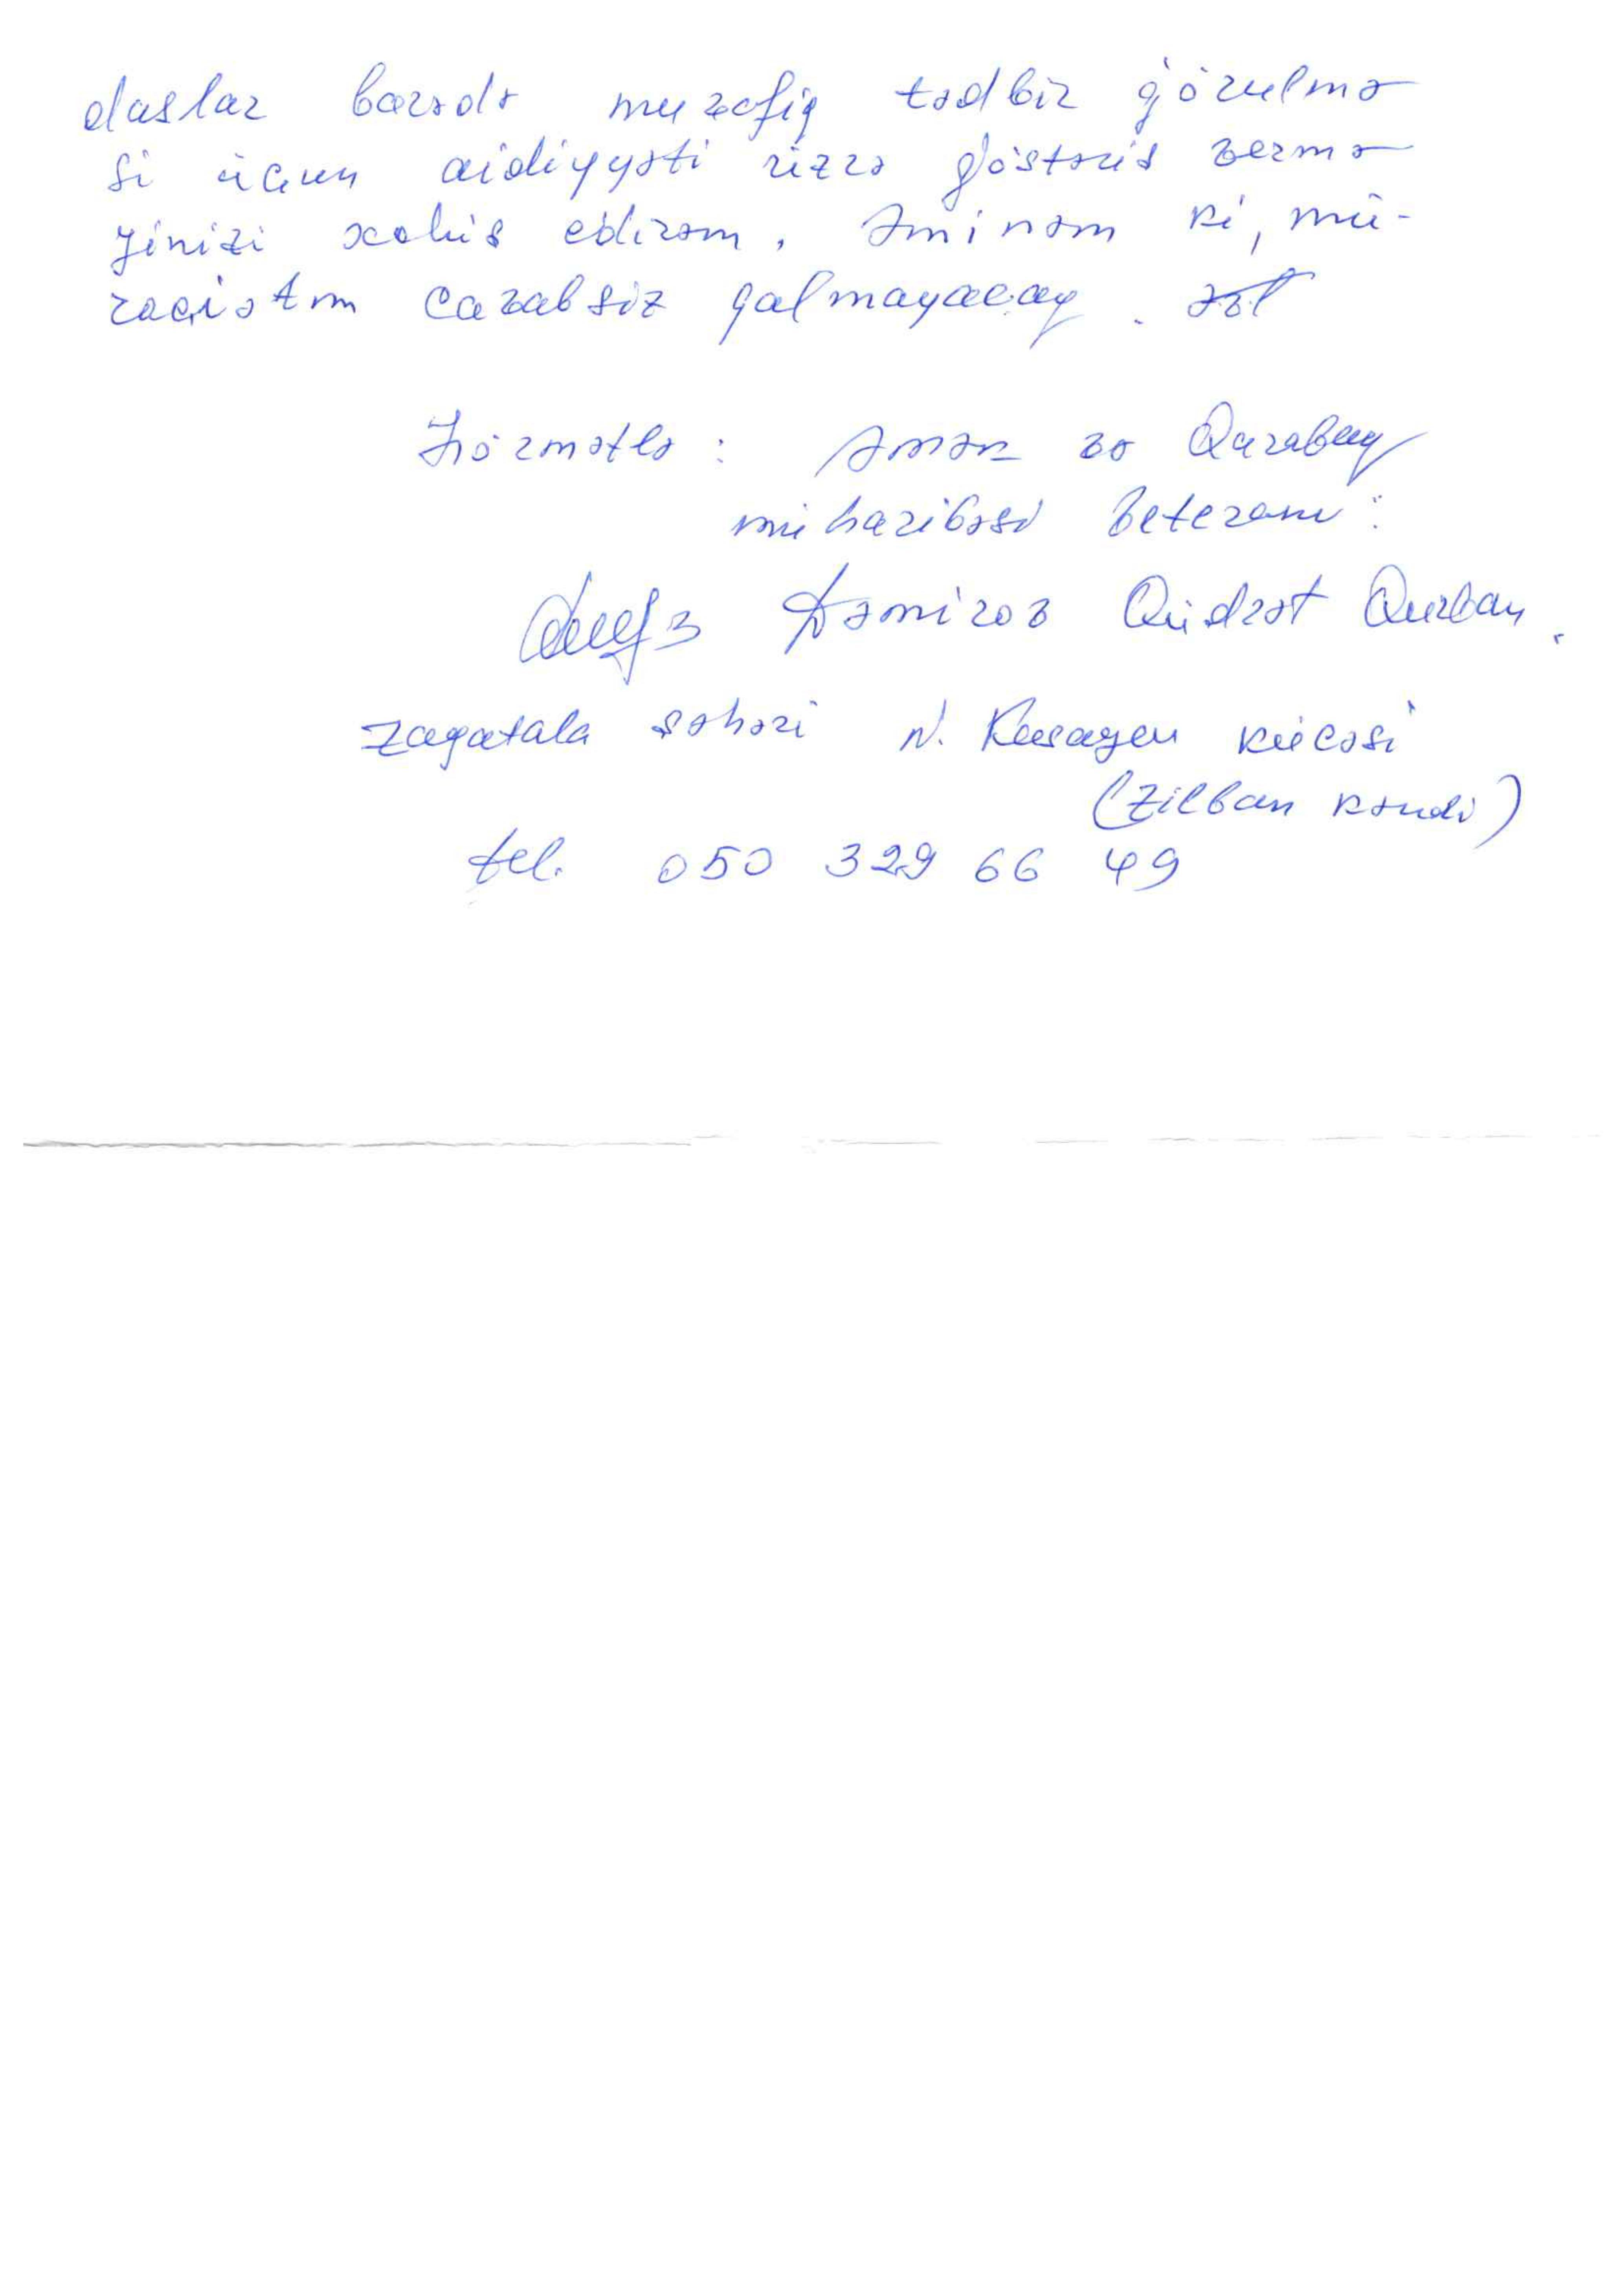 daşlar barədə muvafiq tədbir görulmə
si üçun aidiyyəti üzrə göstəriş vermə
yinizi xahiş edirəm. Əminəm ki, mü-
raciətim cavabsiz qalmayacaq.
Hörmətlə: Əmək və Qarabaq
müharibəsi veteranı:
Dəmirov Qüdrət Qurban.
Zaqatala şəhəri N. küçəsi
(Zilban kəndi)
tel. 050 329 66 49